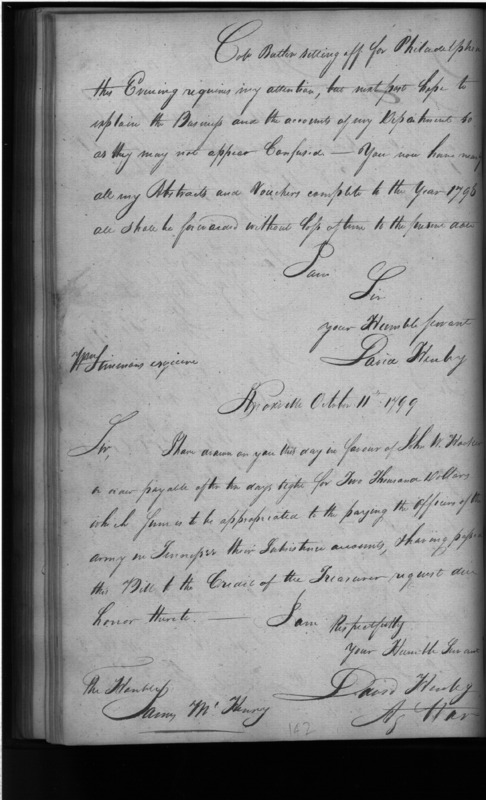 Colo Butler setting off for Philadelphia
this Evening requires my attention, but next post hope to
explain the Business and the accounts of my Department so
as they may not appear Confused — You now have
all my Abstracts and Vouchers complete to the Year 1796
all shall be forwarded without loss of time to the present date
I am
Sir
your Humble Servant
David Henley
Wm Simmons esquire
Knoxville October 11th 1799
Sir, I have drawn on you this day in favour of John W. Hooker
or order payable after ten days sight for Two Thousand Dollars
which Sum is to be appropriated to the paying the Officers of the
army in Tennessee their Subsistence accounts, I having passed
this Bill to the Credit of the Treasurer request due
honor thereto. — I am Respectfully
your Humble Servant
The Honble
James McHenry
David Henley
Ag War
142